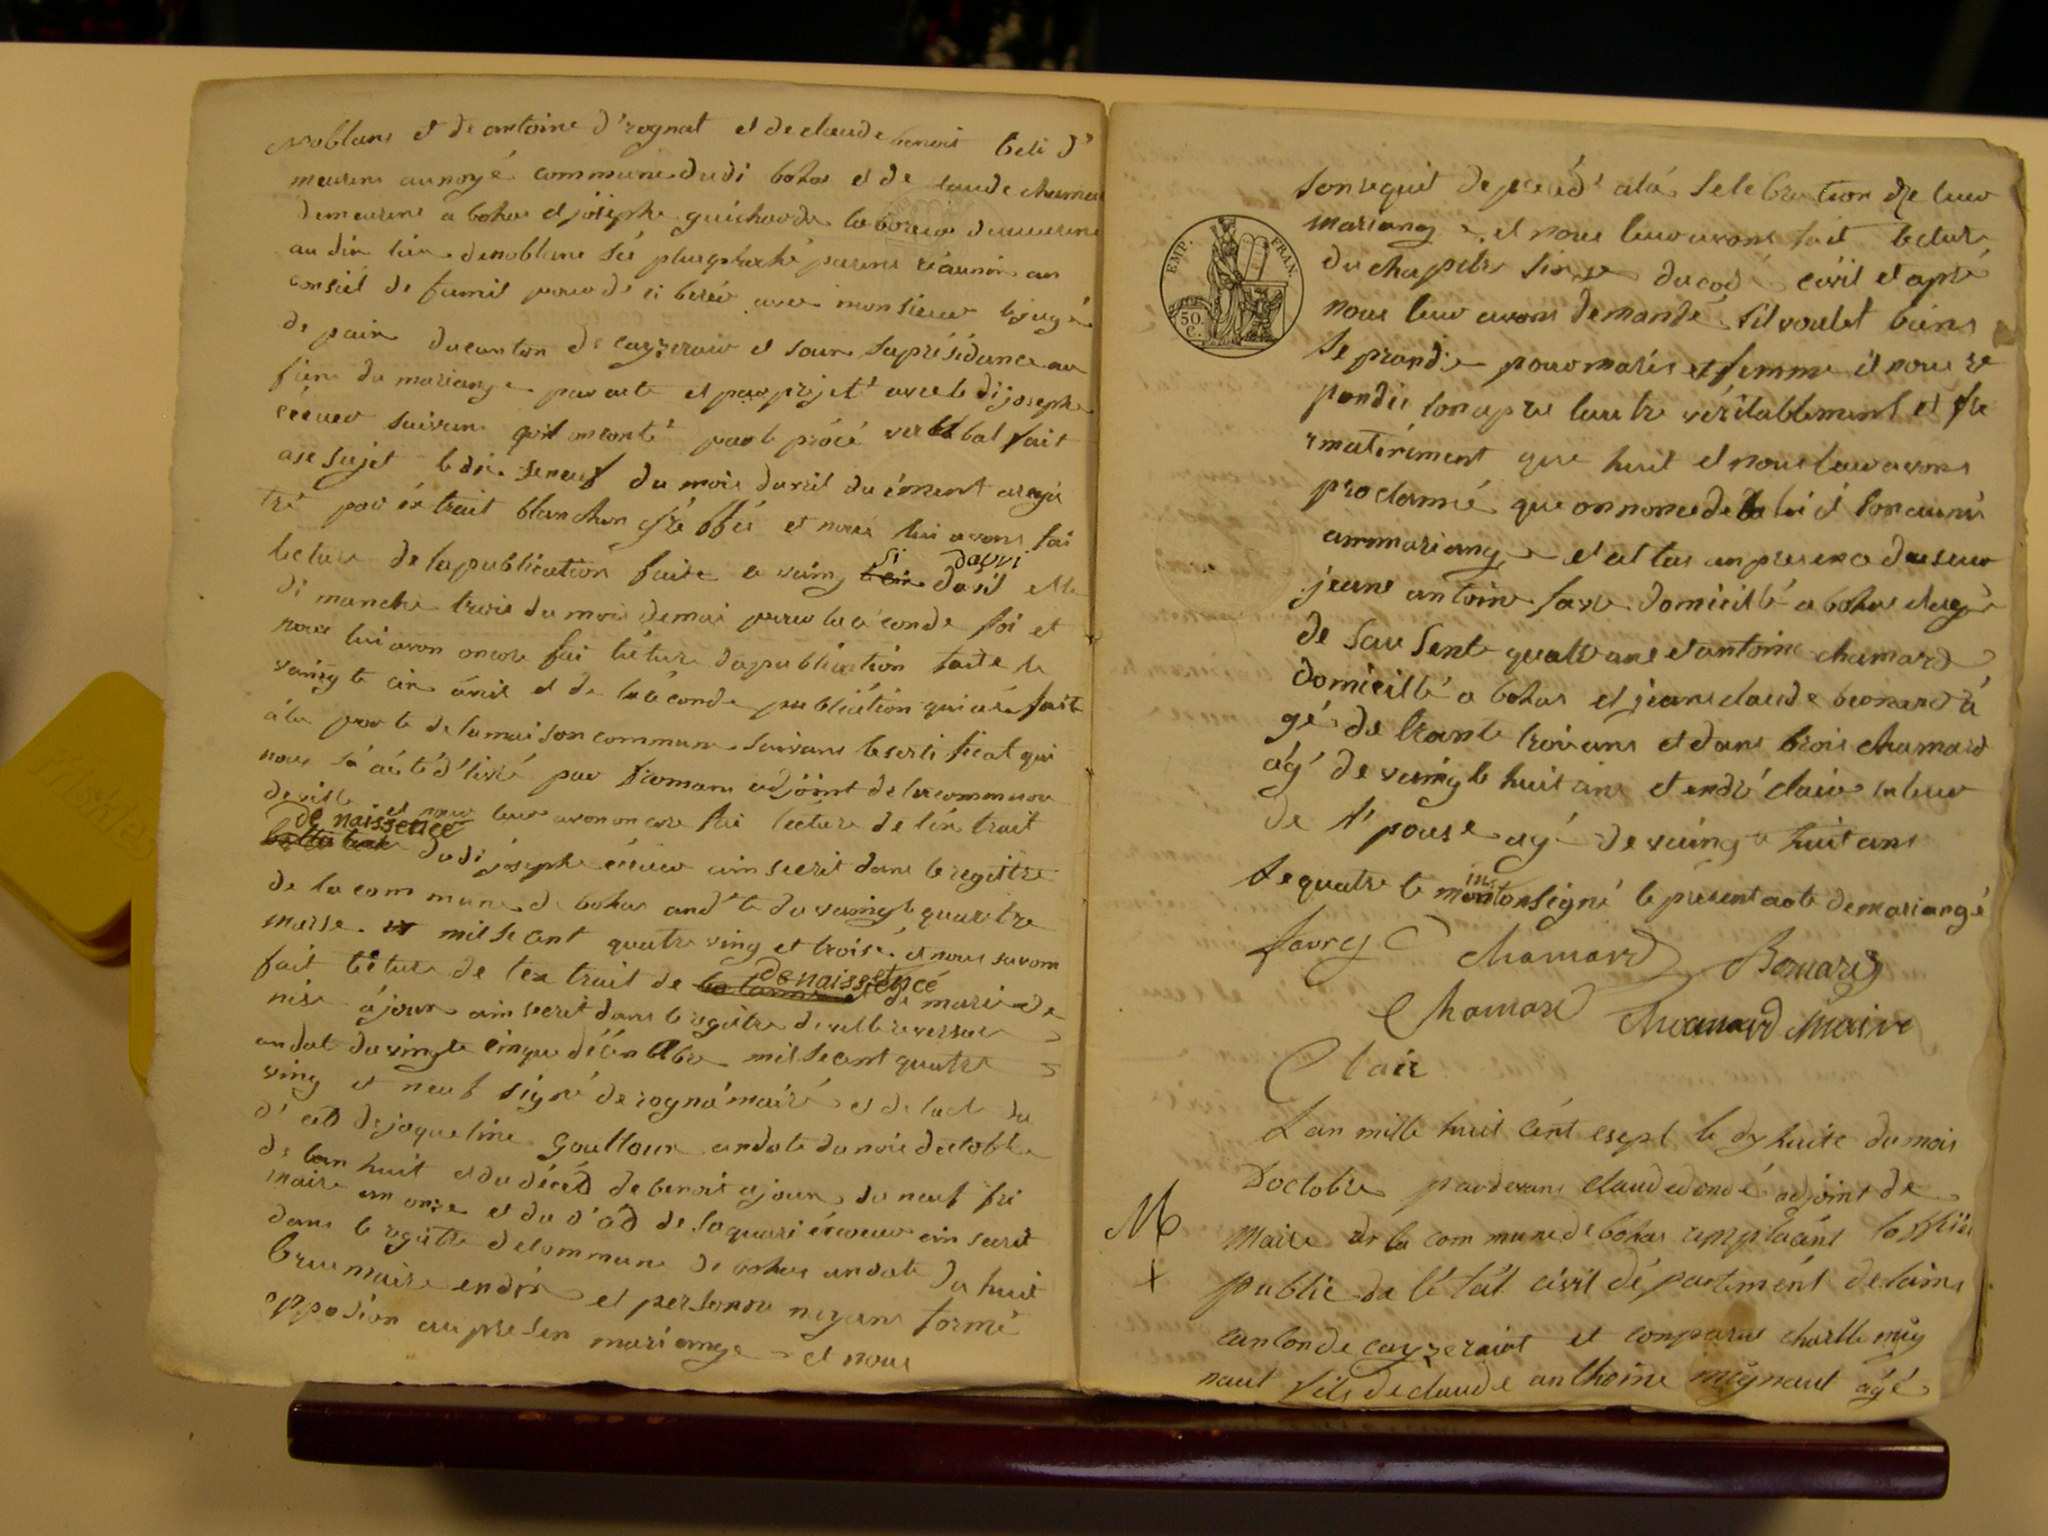 noblans et de antoine d'rognat et de claude benoit beli d'
meurens au noyé commune dudi bohas et de claude chamar
demeurens a bohas et josephe guichard de la
au din lieu de noblans sés plus proche parens réaunir an
conseil de famil pour dé li beréz avec monsieur le juge
de paix du canton de ceyzeriaw et sour sa présidance au
fiens du mariange par acte et par projett avec le di josephe
écueur suivans qu'il on conté par le procé verbbal fait
a se sujet le dix seneuf du mois davril du ément aregis
tré par éxtrait blanchon gréffié et nous lui avons fai
lecture de la publication faite a vaing si davri
di manche trois du mois de mai pour la céconde foi et
nous lui avon oncore fai lécture de publication faite le
vaingte cin avril et de la céconde publication qui a été fait
a la porte de la maison commune suivans le sertificat qui
nous sa aété d'livré par Romans adjoint de la commune
de ville et nous leur avon oncore fai lécture de léx trait
de naissence
du di josephe écueur ainsecrit dans le regittre
de la commune de bohas andate du vaingte quattre
marse mil se cent quatre ving et troisé et nous avons
fait lécture de lex trait de de naissence de marie de
nise ajour ainsecrit dans le régittre de ville reversur
an dat du vingte cinque décén bbre mil se cent quatre
ving et neuf signé de rogna mairé et de lacte du
d'céd de jaqueline Goultour andate du mois doctobbre
de lan huit et du décéd de benoit ajour du neuf fri
maire an onze et du d'céd de jaque écueur ain secrit
dans le régittre de commune de bohas andate du huit
brumaire endix et personne n'ayans formé
opposion au presen mariange et nous
EMP. FRAN.
50. C.
sonsequit de procéd' a la selebration de leur
mariange et nous leur avons fait lecture
du chapitre sinse du codé civil et apré
nous leur avons demandé s'il voulet biens
se prandre pour maris et femme il nous ré
pondir lon apre lautre véritablement et fér
rmatirément que huit et nous leur avons
proclamé que on nonce de la loi il son aunir
ammariange et al tas an presence du sieur
jeans antoine favre domicillé a bohas et agé
de sau sente quattr ans et antoine chamard
domicillé a bohas et jeans claude beonard a
gé de trante trois ans et dans brois chamard
agé de vaingte huit ans et andré claire
de l'épouse agé de vaingte huit ans
le quatre te moin on signé le présent acte de mariange
favre chamard Bonard
chamard chamard maire
Clair
Lan mille huit cént esept le dix huite du mois
Doctobre pardevans claude dondé adjoint de
M maire de la commune de bohas remplaçans loffisié
x public de létat civil département de lains
canton de ceyzeriat et comparus charlle mig
naut fils de claude anthoine mignaut agé